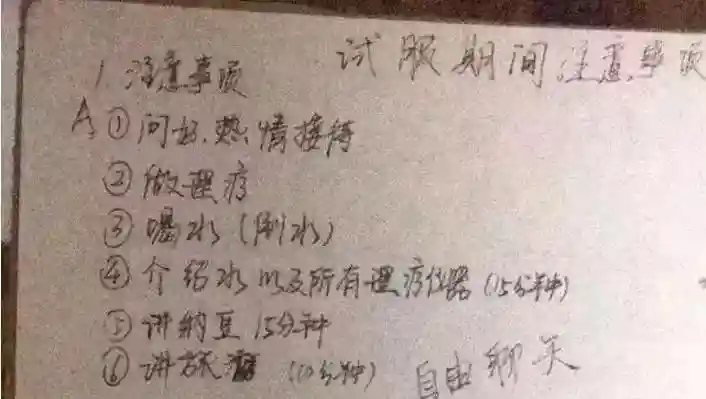 试服期间注意事项
1. 注意事项
A. ①问好.热情接待
②做理疗
③喝水(倒水)
④介绍水以及所有理疗仪器(15分钟)
⑤讲纳豆15分钟
⑥讲 (10分钟) 自由聊天